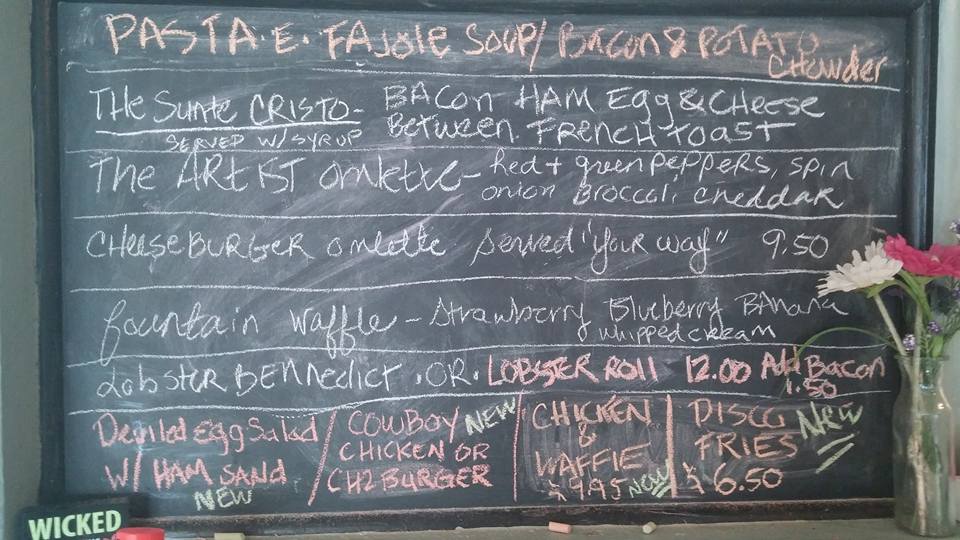 PASTA·E·FAJOLE SOUP/ BACON & POTATO
CHOWDER
THE Sunte CRISTO- BACON HAM Egg & CHEESE
SERVED W/ SYRUP BETWEEN FRENCH TOAST
The ARTIST omlette- Red + green PEPPERS, SPIN
onion Broccoli cheddar
CHEESEBURGER omlette Served "your way" 9.50
fountain waffle - Strawberry Blueberry BAnana
whipped cream
Lobster BENNedict ·OR· LOBSTER ROLL 12.00 Add Bacon
1.50
Deviled egg Salad
W/ HAM SAND
NEW
COWBOY NEW
CHICKEN OR
CHZ BURGER
CHICKEN
&
WAFFLE
$ 9.95 NEW
DISCO NEW
FRIES
$ 6.50
WICKED